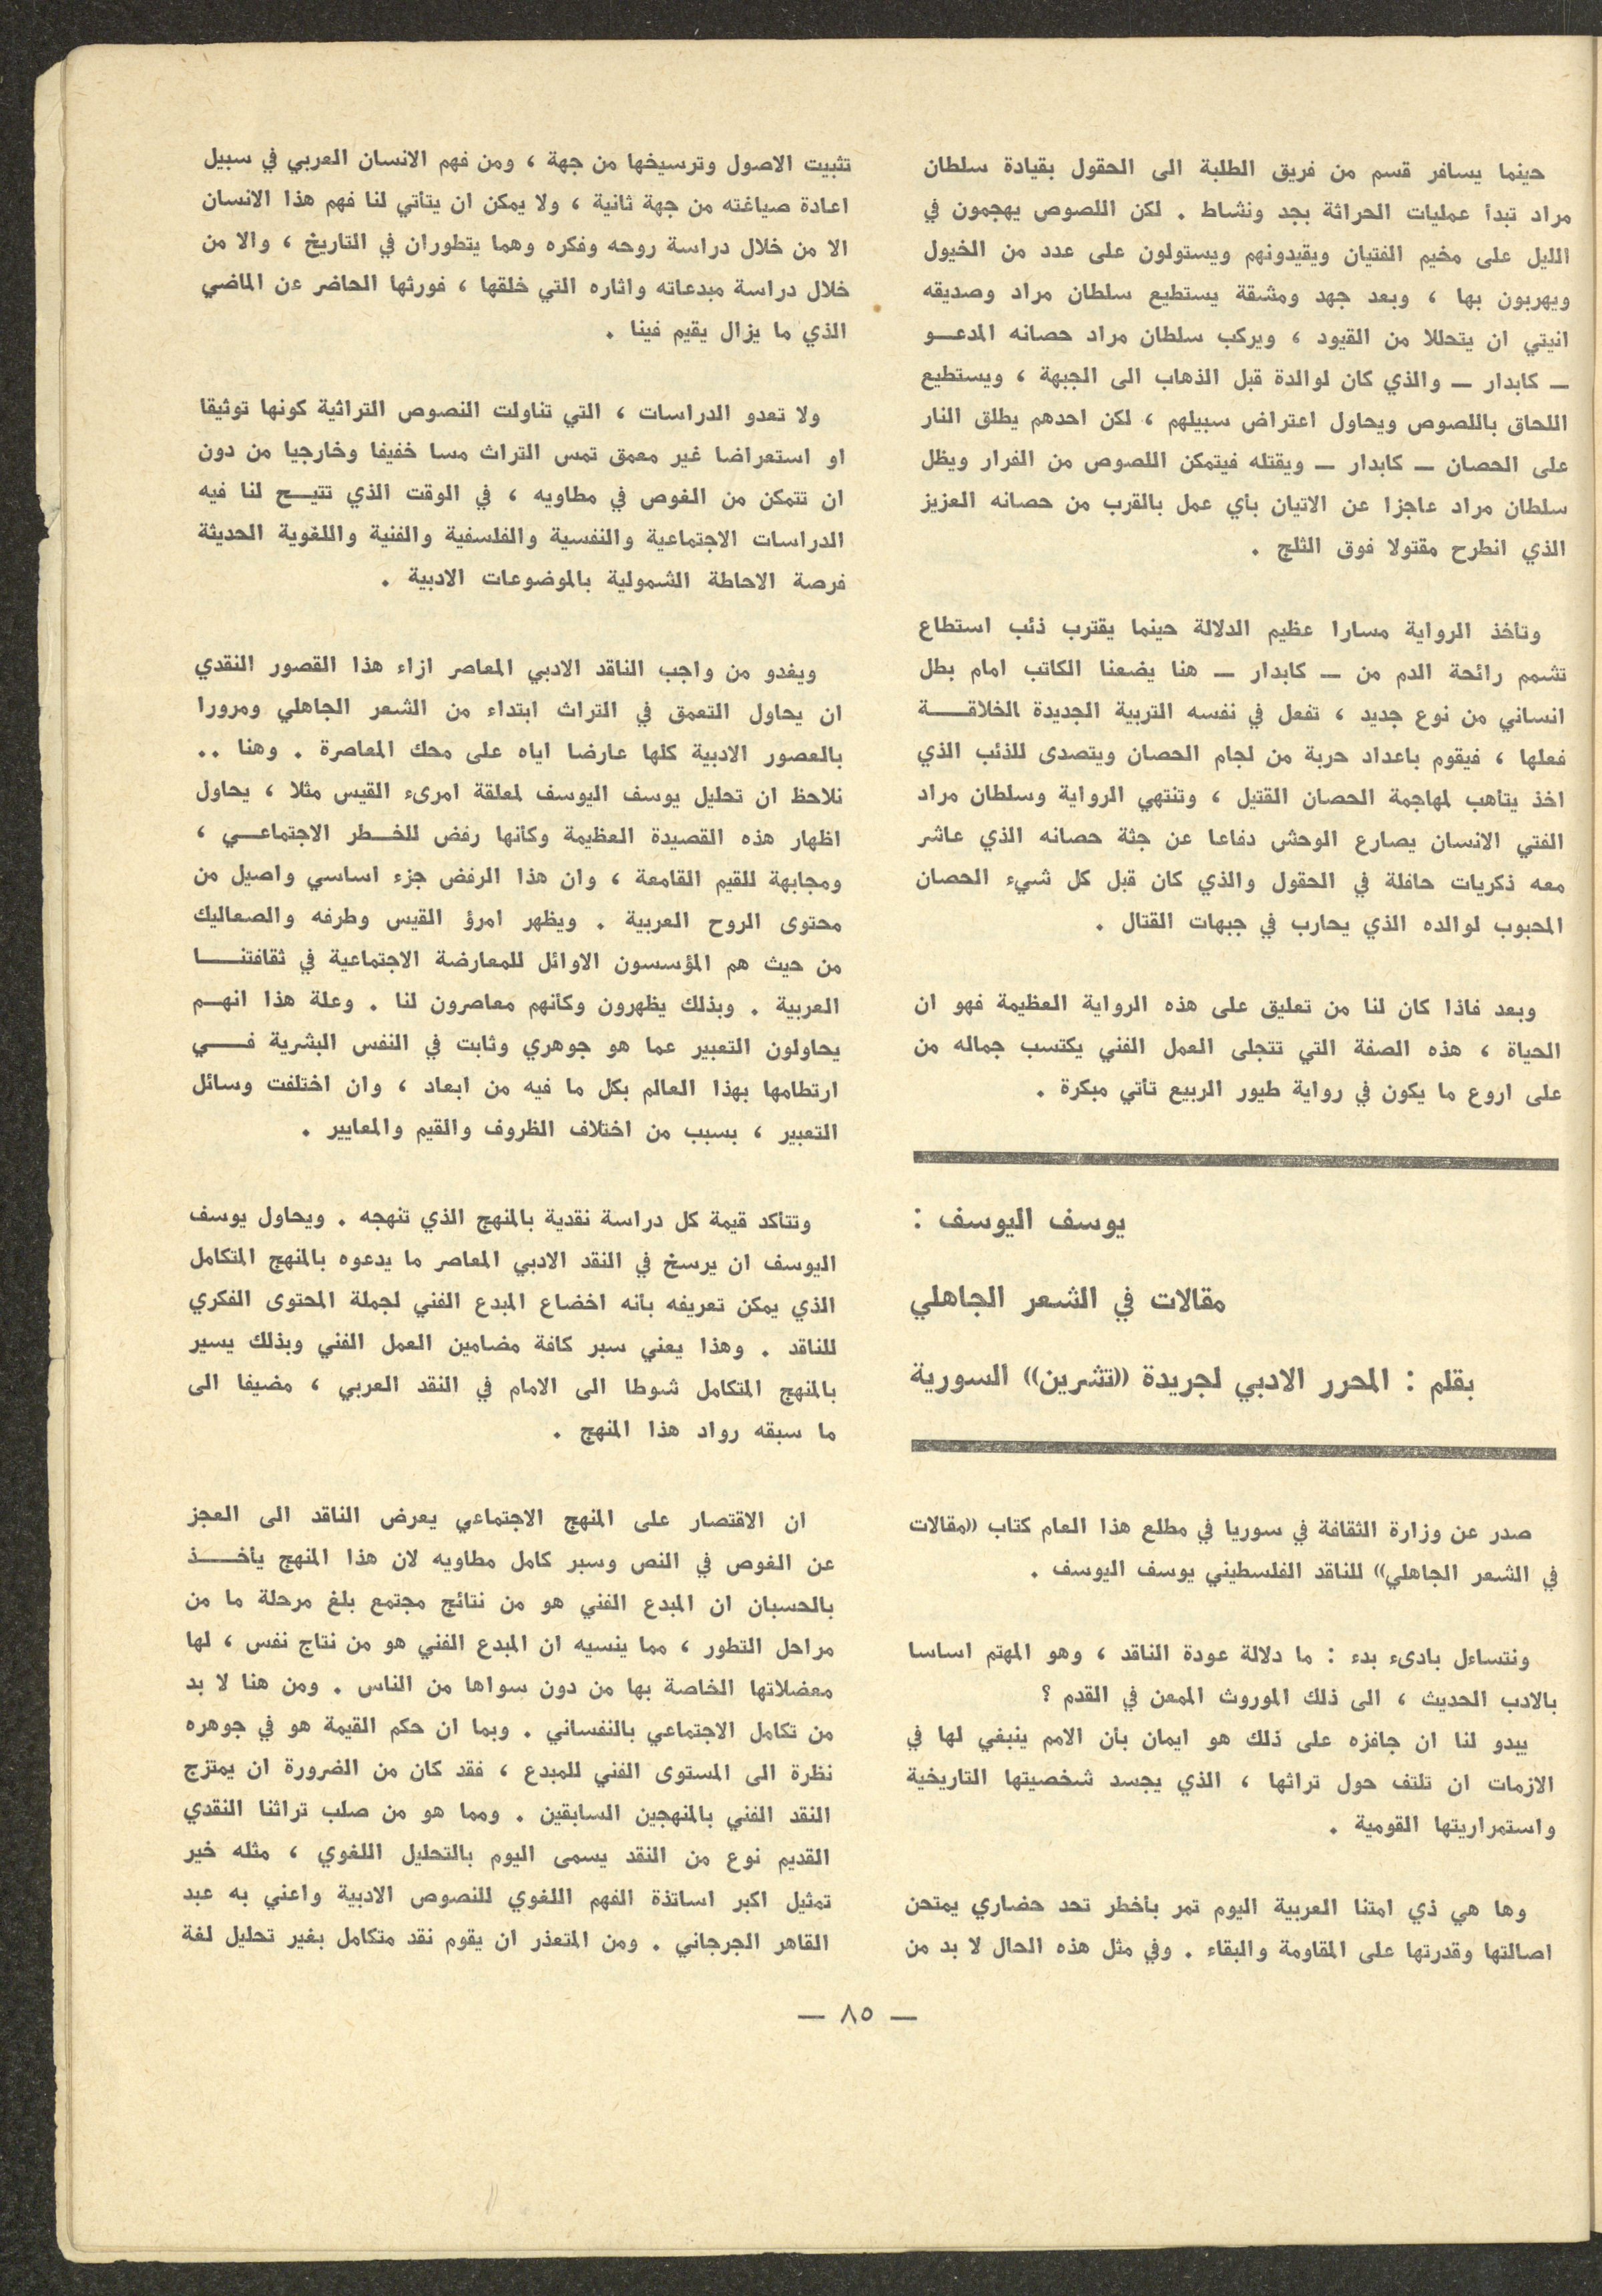 حينما يسافر قسم من فريق الطلبة الى الحقول بقيادة سلطان
مراد تبدأ عمليات الحراثة بجد ونشاط . لكن اللصوص يهجمون في
الليل على مخيم الفتيان ويقيدونهم ويستولون على عدد من الخيول
ويهربون بها ، وبعد جهد ومشقة يستطيع سلطان مراد وصديقه
انيتي ان يتحللا من القيود ، ويركب سلطان مراد حصانه المدعو
ــ كابدار ــ والذي كان لوالدة قبل الذهاب الى الجبهة ، ويستطيع
اللحاق باللصوص ويحاول اعتراض سبيلهم ، لكن احدهم يطلق النار
على الحصان ــ كابدار ــ ويقتله فيتمكن اللصوص من الفرار ويظل
سلطان مراد عاجزا عن الاتيان بأي عمل بالقرب من حصانه العزيز
الذي انطرح مقتولا فوق الثلج .
وتأخذ الرواية مسارا عظيم الدلالة حينما يقترب ذئب استطاع
تشمم رائحة الدم من ــ كابدار ــ هنا يضعنا الكاتب امام بطل
انساني من نوع جديد ، تفعل في نفسه التربية الجديدة الخلاقة
فعلها ، فيقوم باعداد حربة من لجام الحصان ويتصدى للذئب الذي
اخذ يتأهب لمهاجمة الحصان القتيل ، وتنتهي الرواية وسلطان مراد
الفتي الانسان يصارع الوحش دفاعا عن جثة حصانه الذي عاشر
معه ذكريات حافلة في الحقول والذي كان قبل كل شيء الحصان
المحبوب لوالده الذي يحارب في جبهات القتال .
وبعد فاذا كان لنا من تعليق على هذه الرواية العظيمة فهو ان
الحياة ، هذه الصفة التي تتجلى العمل الفني يكتسب جماله من
على اروع ما يكون في رواية طيور الربيع تأتي مبكرة .
يوسف اليوسف :
مقالات في الشعر الجاهلي
بقلم : المحرر الادبي لجريدة ((تشرين)) السورية
صدر عن وزارة الثقافة في سوريا في مطلع هذا العام كتاب ((مقالات
في الشعر الجاهلي)) للناقد الفلسطيني يوسف اليوسف .
ونتساءل بادىء بدء : ما دلالة عودة الناقد ، وهو المهتم اساسا
بالادب الحديث ، الى ذلك الموروث الممعن في القدم ؟
يبدو لنا ان جافزه على ذلك هو ايمان بأن الامم ينبغي لها في
الازمات ان تلتف حول تراثها ، الذي يجسد شخصيتها التاريخية
واستمراريتها القومية .
وها هي ذي امتنا العربية اليوم تمر بأخطر تحد حضاري يمتحن
اصالتها وقدرتها على المقاومة والبقاء . وفي مثل هذه الحال لا بد من
تثبيت الاصول وترسيخها من جهة ، ومن فهم الانسان العربي في سبيل
اعادة صياغته من جهة ثانية ، ولا يمكن ان يتأتي لنا فهم هذا الانسان
الا من خلال دراسة روحه وفكره وهما يتطوران في التاريخ ، والا من
خلال دراسة مبدعاته واثاره التي خلقها ، فورثها الحاضر عن الماضي
الذي ما يزال يقيم فينا .
ولا تعدو الدراسات ، التي تناولت النصوص التراثية كونها توثيقا
او استعراضا غير معمق تمس التراث مسا خفيفا وخارجيا من دون
ان تتمكن من الغوص في مطاويه ، في الوقت الذي تتيح لنا فيه
الدراسات الاجتماعية والنفسية والفلسفية والفنية واللغوية الحديثة
فرصة الاحاطة الشمولية بالموضوعات الادبية .
ويغدو من واجب الناقد الادبي المعاصر ازاء هذا القصور النقدي
ان يحاول التعمق في التراث ابتداء من الشعر الجاهلي ومرورا
بالعصور الادبية كلها عارضا اياه على محك المعاصرة . وهنا ..
نلاحظ ان تحليل يوسف اليوسف لمعلقة امرىء القيس مثلا ، يحاول
اظهار هذه القصيدة العظيمة وكأنها رفض للخطر الاجتماعي ،
ومجابهة للقيم القامعة ، وان هذا الرفض جزء اساسي واصيل من
محتوى الروح العربية . ويظهر امرؤ القيس وطرفه والصعاليك
من حيث هم المؤسسون الاوائل للمعارضة الاجتماعية في ثقافتنا
العربية . وبذلك يظهرون وكأنهم معاصرون لنا . وعلة هذا انهم
يحاولون التعبير عما هو جوهري وثابت في النفس البشرية في
ارتطامها بهذا العالم بكل ما فيه من ابعاد ، وان اختلفت وسائل
التعبير ، بسبب من اختلاف الظروف والقيم والمعايير .
وتتأكد قيمة كل دراسة نقدية بالمنهج الذي تنهجه . ويحاول يوسف
اليوسف ان يرسخ في النقد الادبي المعاصر ما يدعوه بالمنهج المتكامل
الذي يمكن تعريفه بأنه اخضاع المبدع الفني لجملة المحتوى الفكري
للناقد . وهذا يعني سبر كافة مضامين العمل الفني وبذلك يسير
بالمنهج المتكامل شوطا الى الامام في النقد العربي ، مضيفا الى
ما سبقه رواد هذا المنهج .
ان الاقتصار على المنهج الاجتماعي يعرض الناقد الى العجز
عن الغوص في النص وسبر كامل مطاويه لان هذا المنهج يأخذ
بالحسبان ان المبدع الفني هو من نتائج مجتمع بلغ مرحلة ما من
مراحل التطور ، مما ينسيه ان المبدع الفني هو من نتاج نفس ، لها
معضلاتها الخاصة بها من دون سواها من الناس . ومن هنا لا بد
من تكامل الاجتماعي بالنفساني . وبما ان حكم القيمة هو في جوهره
نظرة الى المستوى الفني للمبدع ، فقد كان من الضرورة ان يمتزج
النقد الفني بالمنهجين السابقين . ومما هو من صلب تراثنا النقدي
القديم نوع من النقد يسمى اليوم بالتحليل اللغوي ، مثله خير
تمثيل اكبر اساتذة الفهم اللغوي للنصوص الادبية واعني به عبد
القاهر الجرجاني . ومن المتعذر ان يقوم نقد متكامل بغير تحليل لغة
— ٨٥ —